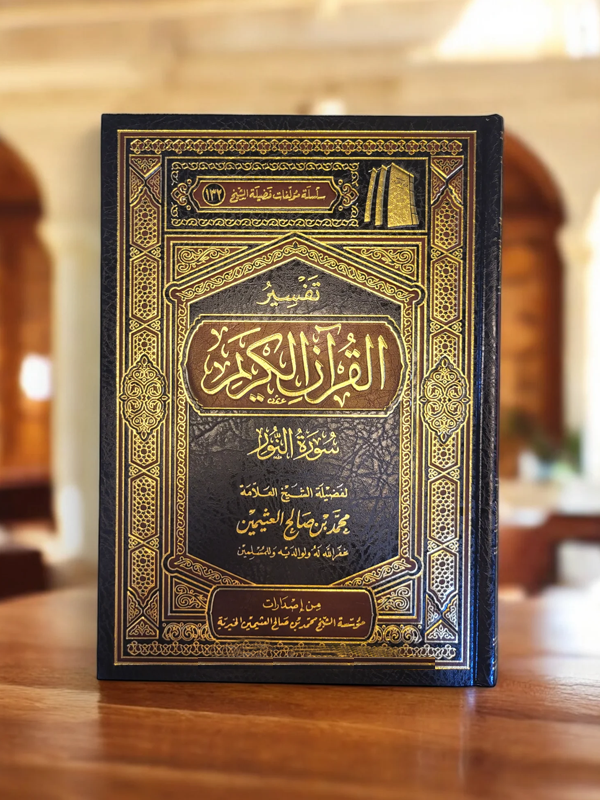 سلسلة مؤلفات فضيلة الشيخ ١٣٢
تَفْسِيرُ
القُرْآنِ الكَرِيمِ
سُورَةُ النُّورِ
لفَضيلَة الشَّيخ العَلّامَة
محمّد بن صالح العثيمين
غفَر الله لَهُ ولوالدَيْه وَللمُسْلمِين
مِن إصْدَارات
مؤسّسة الشيخ محمّد بن صَالح العثيمين الخيريّة